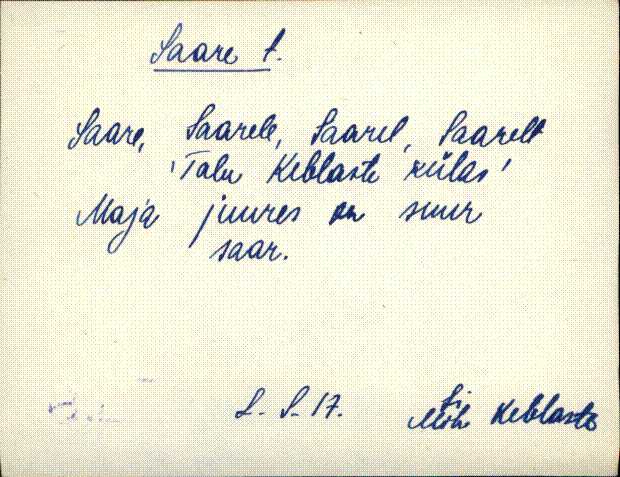 Saare t.
Saare, Saarele, Saarel, Saarelt
'Talu Keblaste külas'
Maja juures on suur
saar.
L. S. 17.
Mih Keblaste